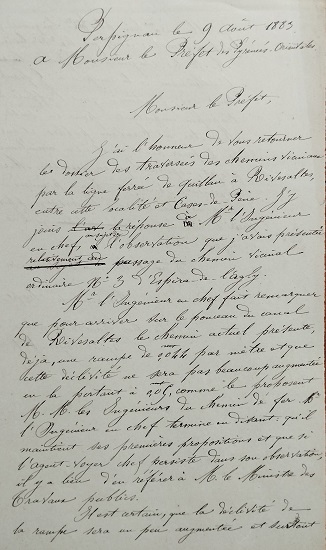 Perpignan le 9 Août 1883
A Monsieur le Préfet des Pyrénées-Orientales
Monsieur le Préfet,
J'ai l'honneur de vous retourner
le dossier des traversées des chemins vicinaux
par la ligne ferrée de Quillan à Rivesaltes,
entre cette localité et Cases-de-Pène. J'y
joins la réponse de Mr l'Ingénieur
en chef à l'observation que j'avais présentée
relativement au passage du chemin vicinal
ordinaire No 3 d'Espira de l'Agly
Mr l'Ingénieur en chef fait remarquer
que pour arriver sur le ponceau du canal
de Rivesaltes le chemin actuel présente,
déjà, une rampe de 0m044 par mètre et que
cette déclivité ne sera pas beaucoup augmentée
en la portant à 0m05, comme le proposent
M.M. les Ingénieurs du Chemin de fer. Mr
l'Ingénieur en chef termine en disant qu'il
maintient ses premières propositions et que si
l'agent-voyer chef persiste dans son observation,
il y a lieu d'en référer à M. le Ministre des
Travaux publics.
Il est certain, que la déclivité de
la rampe sera un peu augmentée et surtout